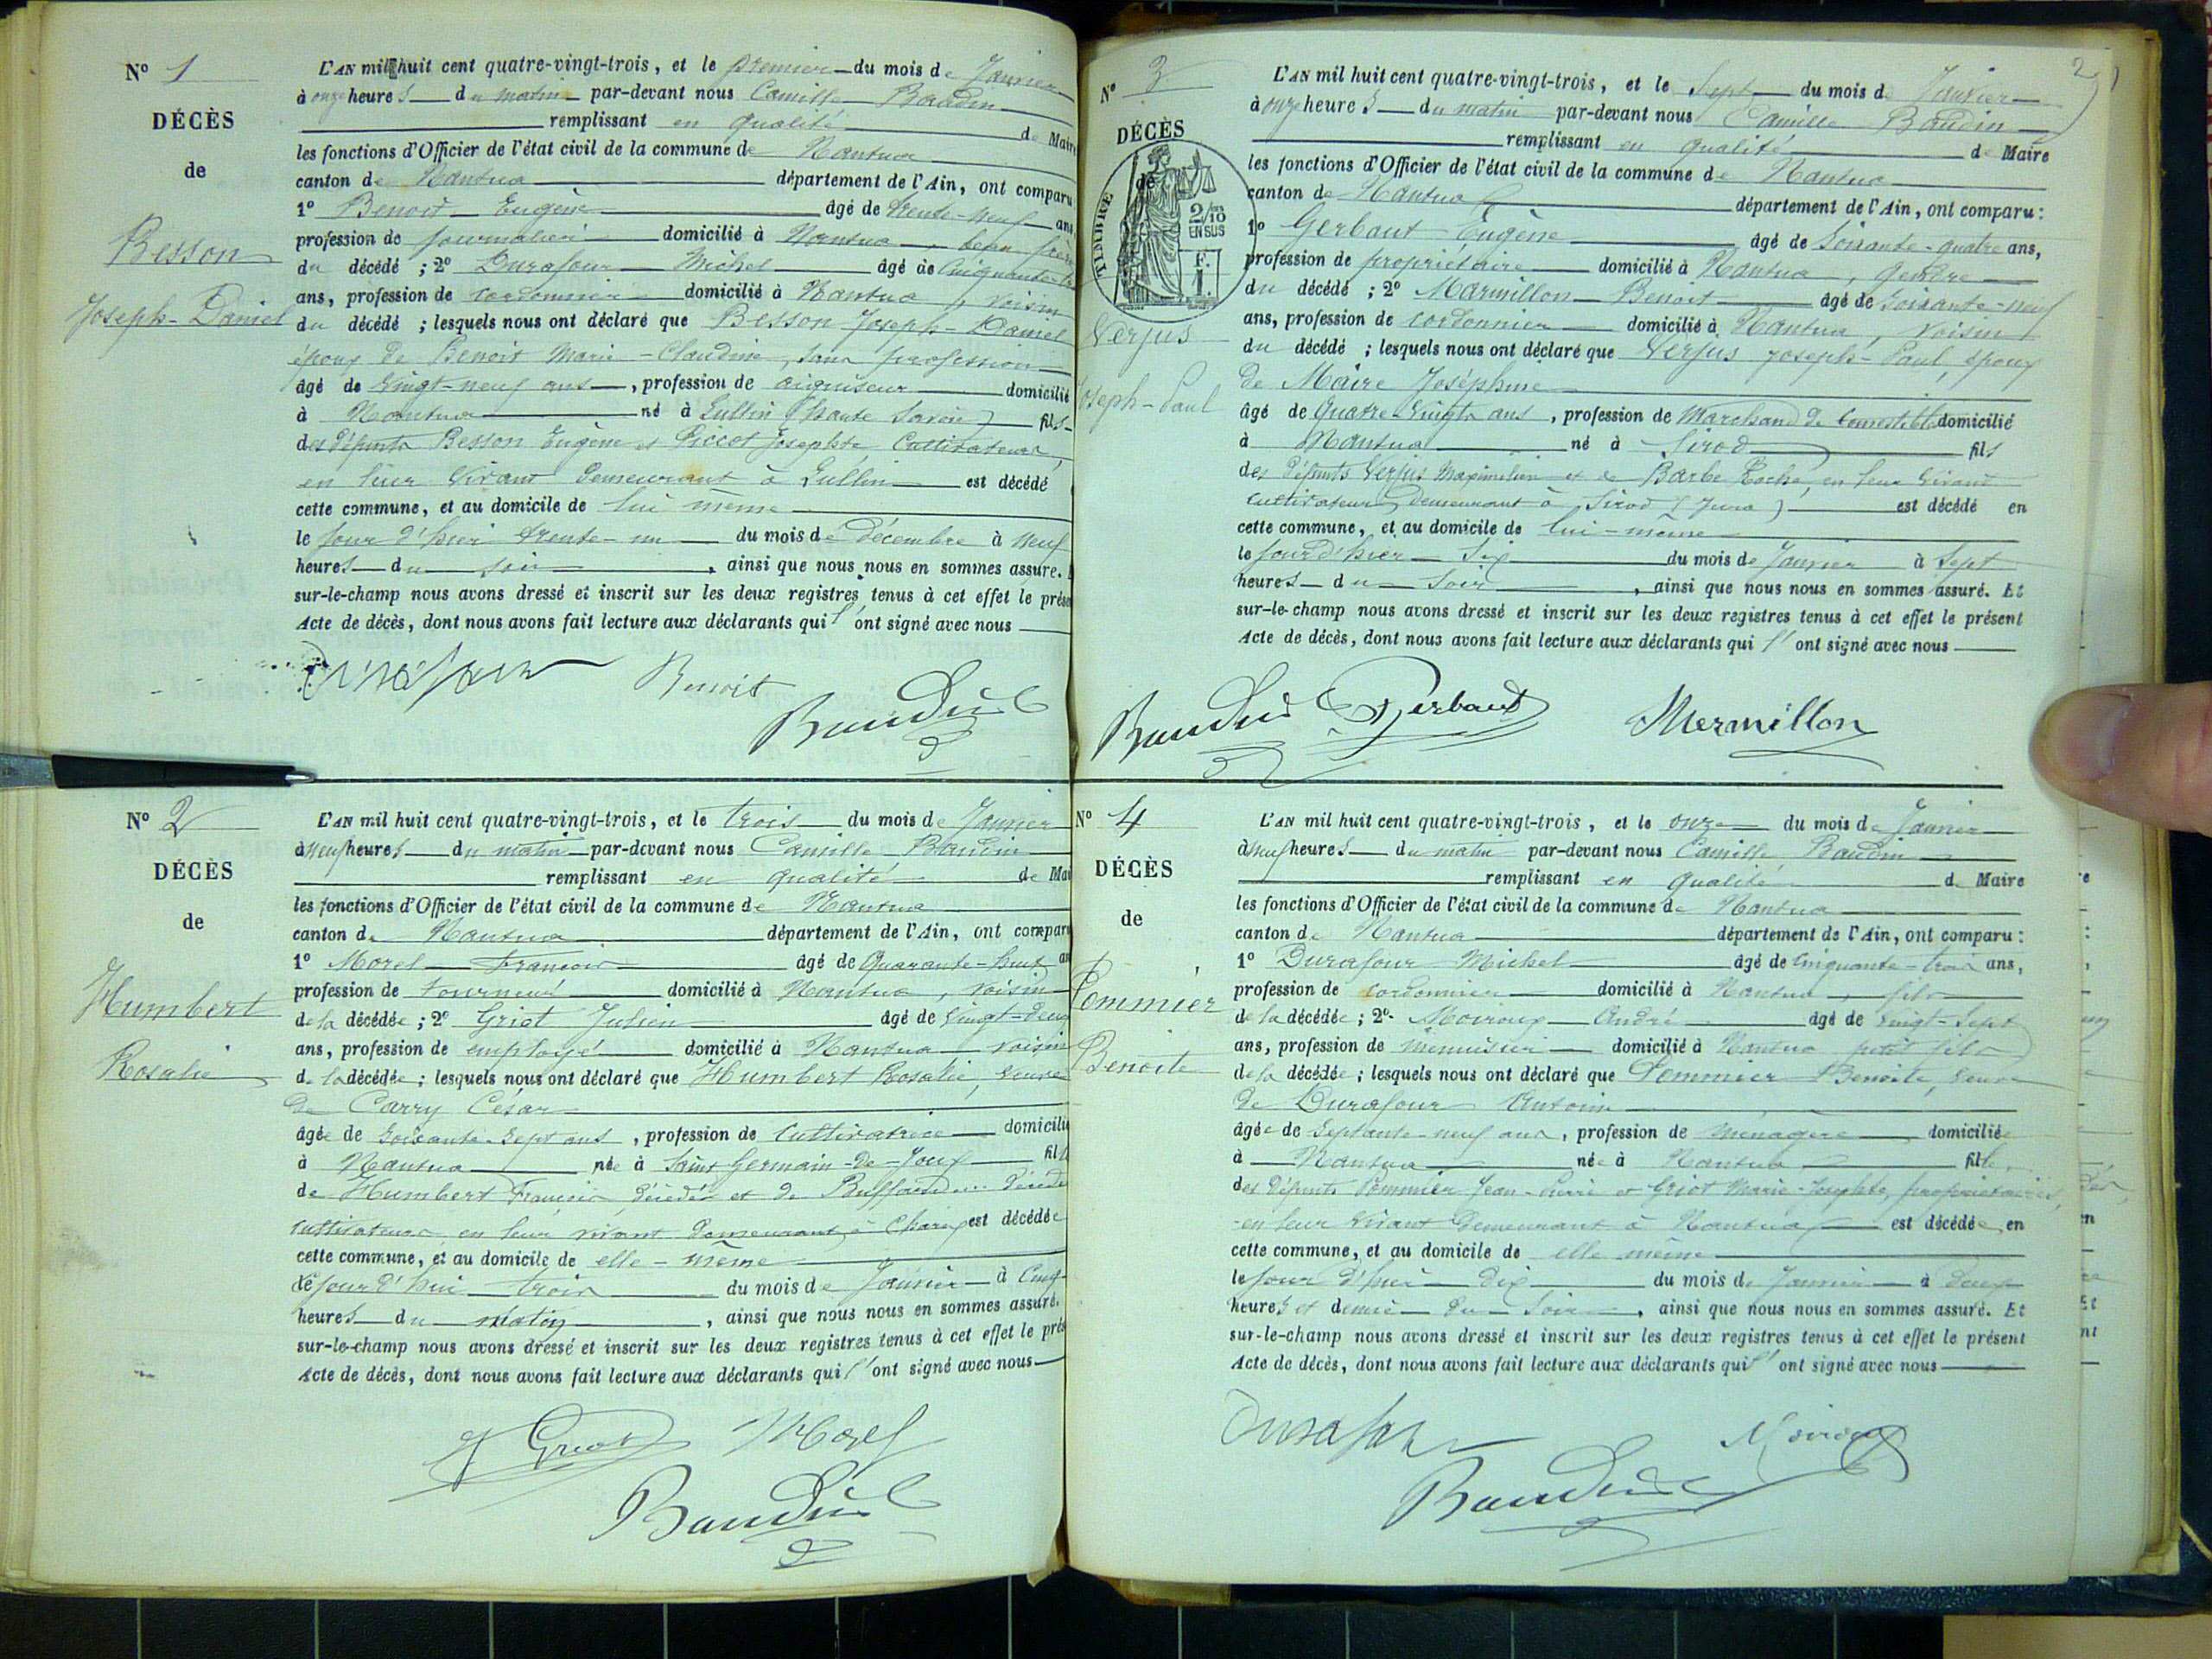 N° 1
DÉCÈS
de
Besson
Joseph-Daniel
L'AN mil huit cent quatre-vingt-trois, et le premier du mois de Janvier
à onze heures du matin par-devant nous Camille Baudin
remplissant en qualité de Maire
les fonctions d'Officier de l'état civil de la commune de Nantua
canton de Nantua département de l'Ain, ont comparu
1° Benoit Eugène âgé de trente-neuf ans
profession de journalier domicilié à Nantua, beau frère
du décédé ; 2° Durafour Michel âgé de Cinquante-
ans, profession de cordonnier domicilié à Nantua, voisin
du décédé ; lesquels nous ont déclaré que Besson Joseph-Daniel
époux de Benoit Marie-Claudine, sans profession
âgé de vingt-neuf ans, profession de aiguiseur domicilié
à Nantua né à Lullin (haute Savoie) fils
des défunts Besson Eugène et Piccot Josephte, Cultivateurs,
en leur vivant demeurant à Lullin est décédé
cette commune, et au domicile de lui même
le jour d'hier trente-un du mois de décembre à neuf
heures du soir, ainsi que nous nous en sommes assuré.
sur-le-champ nous avons dressé et inscrit sur les deux registres tenus à cet effet le prése
Acte de décès, dont nous avons fait lecture aux déclarants qui l'ont signé avec nous
Durafour Benoit
Baudin
N° 2
DÉCÈS
de
Humbert
Rosalie
L'AN mil huit cent quatre-vingt-trois, et le trois du mois de Janvier
à neuf heures du matin par-devant nous Camille Baudin
remplissant en qualité de Mai
les fonctions d'Officier de l'état civil de la commune de Nantua
canton de Nantua département de l'Ain, ont comparu
1° Morel François âgé de Quarante-huit an
profession de tourneur domicilié à Nantua, voisin
de la décédée ; 2° Griot Julien âgé de vingt-deux
ans, profession de employé domicilié à Nantua voisin
de la décédée ; lesquels nous ont déclaré que Humbert Rosalie, veuve
de Carry César
âgée de soixante-sept ans, profession de Cultivatrice domicilié
à Nantua née à Saint Germain-de-Joux fille
de Humbert François, décédé et de Buffard ... décédée
cultivateurs en leur vivant demeurant à Charix est décédée
cette commune, et au domicile de elle-même
le jour d'hui trois du mois de Janvier à cinq
heures du matin, ainsi que nous nous en sommes assuré.
sur-le-champ nous avons dressé et inscrit sur les deux registres tenus à cet effet le prés
Acte de décès, dont nous avons fait lecture aux déclarants qui l'ont signé avec nous
J Griot Morel
Baudin
2
N° 3
DÉCÈS
de
TIMBRE
2/10
EN SUS
F.
1.
Verjus
Joseph-Paul
L'AN mil huit cent quatre-vingt-trois, et le Sept du mois de Janvier
à onze heures du matin par-devant nous Camille Baudin
remplissant en qualité de Maire
les fonctions d'Officier de l'état civil de la commune de Nantua
canton de Nantua département de l'Ain, ont comparu :
1° Gerbaut Eugène âgé de Soixante-quatre ans,
profession de propriétaire domicilié à Nantua, gendre
du décédé ; 2° Marmillon Benoit âgé de soixante-neuf
ans, profession de cordonnier domicilié à Nantua, voisin
du décédé ; lesquels nous ont déclaré que Verjus Joseph-Paul, époux
de Maire Joséphine
âgé de Quatre-vingts ans, profession de Marchand de Comestibles domicilié
à Nantua né à Sirod fils
des défunts Verjus Maximilien et de Barbe Roche, en leur vivant
cultivateurs demeurant à Sirod (Jura) est décédé en
cette commune, et au domicile de lui-même
le jour d'hier Six du mois de Janvier à Sept
heures du Soir, ainsi que nous nous en sommes assuré. Et
sur-le-champ nous avons dressé et inscrit sur les deux registres tenus à cet effet le présent
Acte de décès, dont nous avons fait lecture aux déclarants qui l'ont signé avec nous
Baudin Gerbaut Mermillon
N° 4
DÉCÈS
de
Pommier
Benoite
L'AN mil huit cent quatre-vingt-trois, et le onze du mois de Janvier
à neuf heures du matin par-devant nous Camille Baudin
remplissant en qualité de Maire
les fonctions d'Officier de l'état civil de la commune de Nantua
canton de Nantua département de l'Ain, ont comparu :
1° Durafour Michel âgé de Cinquante-trois ans,
profession de cordonnier domicilié à Nantua, fils
de la décédée ; 2° Moiroux André âgé de vingt-sept
ans, profession de menuisier domicilié à Nantua petit fils
de la décédée ; lesquels nous ont déclaré que Pommier Benoite, veuve
de Durafour Antoine
âgée de Septante-neuf ans, profession de ménagère domiciliée
à Nantua née à Nantua fille
des défunts Pommier Jean-Pierre et Griot Marie-Josephte, propriétaires,
en leur vivant demeurant à Nantua est décédée en
cette commune, et au domicile de elle même
le jour d'hier dix du mois de Janvier à deux
heures et demie du Soir, ainsi que nous nous en sommes assuré. Et
sur-le-champ nous avons dressé et inscrit sur les deux registres tenus à cet effet le présent
Acte de décès, dont nous avons fait lecture aux déclarants qui l'ont signé avec nous
Durafour Moiroux
Baudin